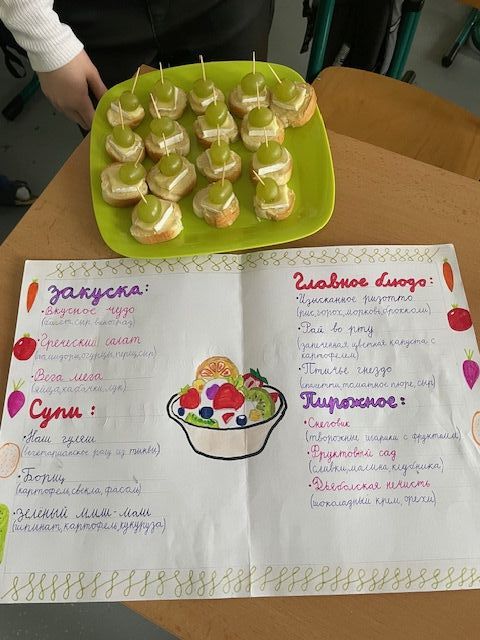 Закуска:
• Вкусное чудо
(багета, сыр, виноград)
• Греческий салат
(помидора, огурец, перец, сыр)
• Вега мега
(яйца, кабачки, лук)
Супи :
• Наш гуляш
(вегетарианское рагу из тыквы)
• Борщ
(картофель, свекла, фасоль)
• Зеленый миш-маш
(шпинат, картофель, кукуруза)
Главное блюдо:
• Изысканное ризотто
(рис, горох, морковь, брокколи)
• Рай во рту
(запеченная цветная капуста с
картофелем)
• Птичье гнездо
(спагетти, томатное пюре, сыр)
Пирожное:
• Снеговик
(творожные шарики с фруктами)
• Фруктовый сад
(сливки, малина, клубника)
• Дьявольская нечисть
(шоколадный крем, орехи)